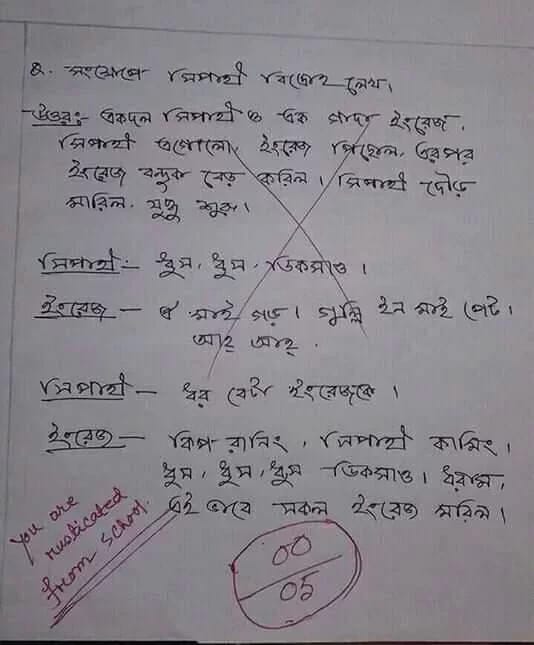 ২. সংক্ষেপে সিপাহী বিদ্রোহ লেখ।
উত্তরঃ- একদল সিপাহী ও এক গাদা ইংরেজ,
সিপাহী এগোলো, ইংরেজ পিছোল, এরপর
ইংরেজ বন্দুক বের করিল। সিপাহী দৌড়
মারিল, যুদ্ধ শুরু।
সিপাহী:- ধুম, ধুম, ডিকসাও।
ইংরেজ - ও মাই গড়। গুল্লি ইন মাই পেট।
আহ্ আহ্.
সিপাহী - ধর বেটা ইংরেজকে।
ইংরেজ - কিপ রানিং, সিপাহী কামিং।
ধুম, ধুম, ধুম ডিকসাও। ধরাম,
এই ভাবে সকল ইংরেজ মরিল।
You are
rusticated
from school.
00
05